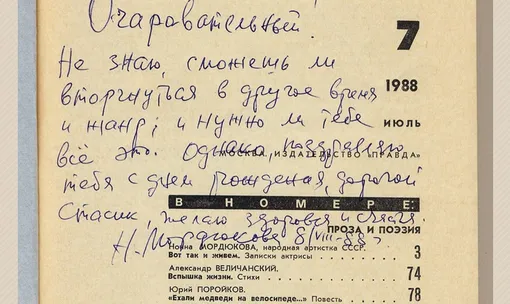 Очаровательный!
7
Не знаю, сможешь ли
вторгнуться в другое время
1988
и жанр; и нужно ли тебе
ИЮЛЬ
всё это. Однако, поздравляю
МОСКВА. ИЗДАТЕЛЬСТВО «ПРАВДА»
тебя с днем рождения, дорогой
В НОМЕРЕ:
Стасик, желаю здоровья и счастья.
ПРОЗА И ПОЭЗИЯ
Н. Мордюкова 8/VIII-88 г.
Нонна МОРДЮКОВА, народная артистка СССР.
Вот так и живем. Записки актрисы 3
Александр ВЕЛИЧАНСКИЙ.
Вспышка жизни. Стихи 74
Юрий ПОРОЙКОВ.
«Ехали медведи на велосипеде...» Повесть 78